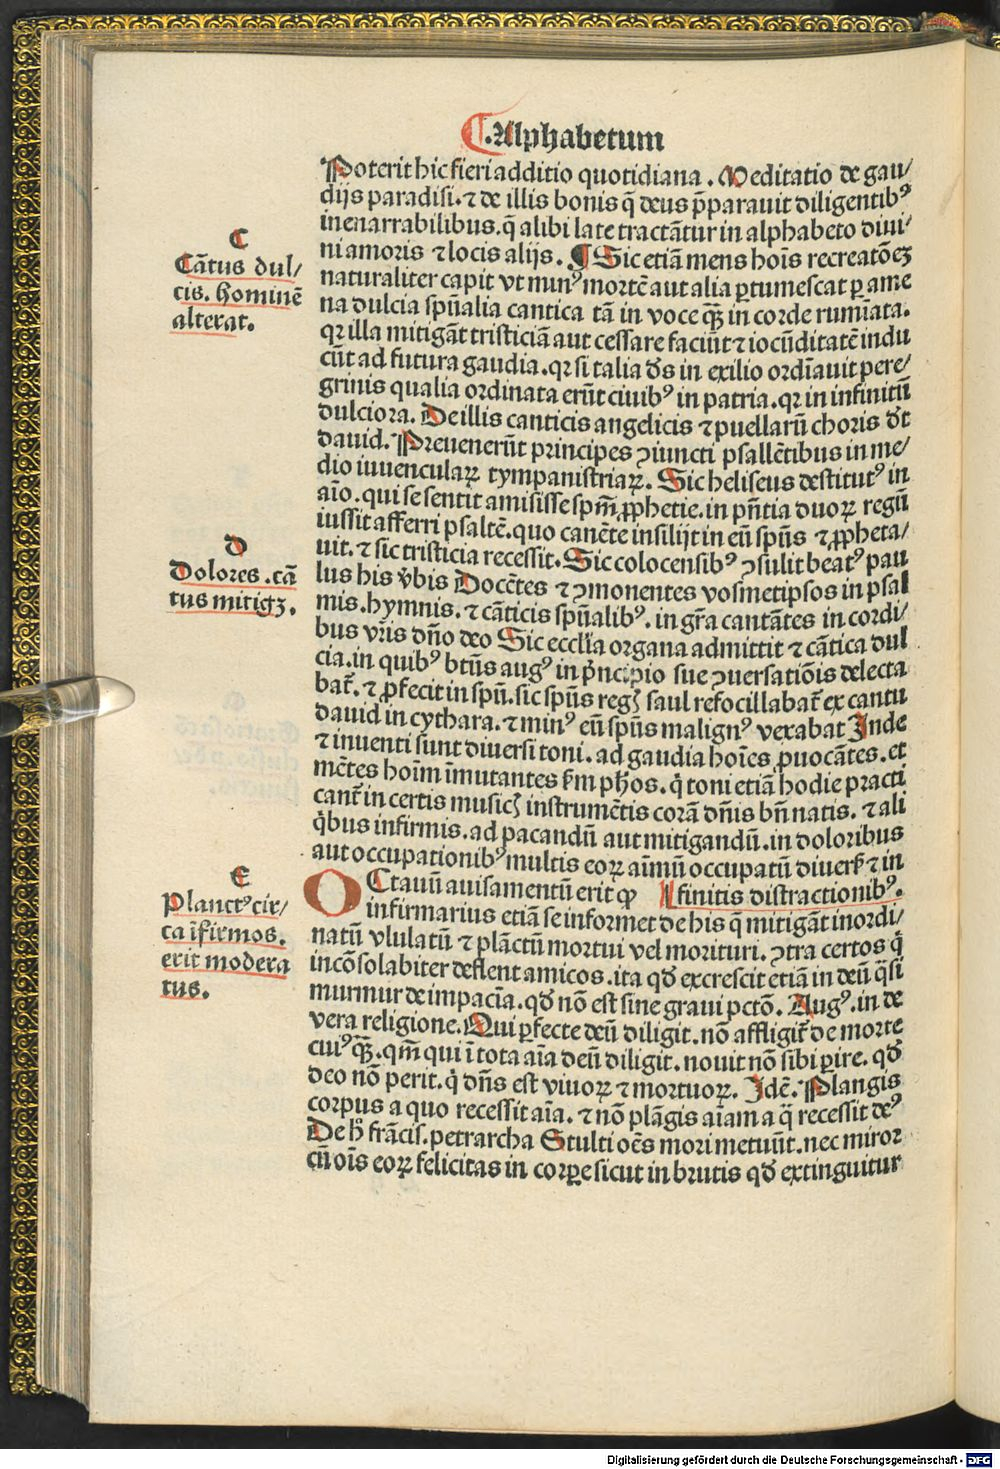 .Alphabetum
Poterit hic fieri additio quotidiana. Meditatio de gau/
dijs paradisi. ⁊ de illis bonis q̄ deus p̄parauit diligentibꝰ
inenarrabilibus. q̄ alibi late tractãtur in alphabeto diui/
ni amoris ⁊ locis alijs. ¶ Sic etiã mens hoĩs recreatõeꝫ
naturaliter capit vt minꝰ mortẽ aut alia ꝑtumescat ꝑ ame
na dulcia spñalia cantica tã in voce qꝫ̃ in corde rumĩata.
qꝛ illa mitigãt tristiciã aut cessare faciũt ⁊ iocũditatẽ indu
cũt ad futura gaudia. qꝛ si talia d̃s in exilio ordĩauit pere/
grinis qualia ordinata erũt ciuibꝰ in patria. qꝛ in infinitũ
dulciora. De illis canticis angelicis ⁊ puellarũ choris d̃t
dauid. Preuenerũt principes ꝯiuncti psallẽtibus in me/
dio iuuencularꝝ tympanistriarꝝ. Sic heliseus destitutꝰ in
aĩo. qui se sentit amisisse spm̃ ꝓphetie. in pñtia duorꝝ regũ
iussit afferri psaltẽ. quo canẽte insilijt in eũ spũs ⁊ ꝓpheta/
uit. ⁊ sic tristicia recessit. Sic colocensibꝰ ꝯsulit beatꝰ pau
lus his v̾bis Docẽtes ⁊ ꝯmonentes vosmetipsos in psal
mis. hymnis. ⁊ cãticis spñalibꝰ. in gr̃a cantãtes in cordi/
bus vr̃is dño deo Sic ecclĩa organa admittit ⁊ cãtica dul
cia. in quibꝰ btũs augꝰ in p̾ncipio sue ꝯuersatiõis delecta
bat̃. ⁊ ꝓfecit in spũ. sic spũs regꝭ saul refocillabat̃ ex cantu
dauid in cythara. ⁊ minꝰ eũ spũs malignꝰ vexabat Inde
⁊ inuenti sunt diuersi toni. ad gaudia hoĩes ꝓuocãtes. et
mẽtes hoĩm ĩmutantes s̃m ph̃os. q̾ toni etiã hodie practi
cant̃ in certis musicꝭ instrumẽtis corã dñis bñ natis. ⁊ ali
q̾bus infirmis. ad pacandũ aut mitigandũ. in doloribus
aut occupationibꝰ multis eorꝝ aĩmũ occupatũ diuers̃ ⁊ in
OCtauũ auisamentũ erit ꝙ finitis distractionibꝰ.
infirmarius etiã se informet de his q̄ mitigãt inordi/
natũ vlulatũ ⁊ plãctũ mortui vel morituri. ꝯtra certos q̾
incõsolabiter deflent amicos. ita qd̃ excrescit etiã in deũ q̃si
murmur de impacĩa. qd̃ nõ est sine graui pctõ. Augꝰ. in de
vera religione. Qui ꝑfecte deũ diligit. nõ affligit̃ de morte
cuiꝰqꝫ̃. qm̃ qui ĩ tota aĩa deũ diligit. nouit nõ sibi ꝑire. qd̃
deo nõ perit. q̾ dñs est viuorꝝ ⁊ mortuorꝝ. Idẽ. Plangis
corpus a quo recessit aĩa. ⁊ nõ plãgis aĩam a q̾ recessit deꝰ
De h̾ frãcis̃. petrarcha Stulti oẽs mori metuũt. nec miror
cũ oĩs eorꝝ felicitas in corꝑe sicut in brutis qd̃ extinguitur
C
Cãtus dul/
cis. hominẽ
alterat.
D
Dolores. cã
tus mitigꝫ.
E
Planctꝰ cir/
ca ĩfirmos.
erit modera
tus.
Digitalisierung gefördert durch die Deutsche Forschungsgemeinschaft - DFG